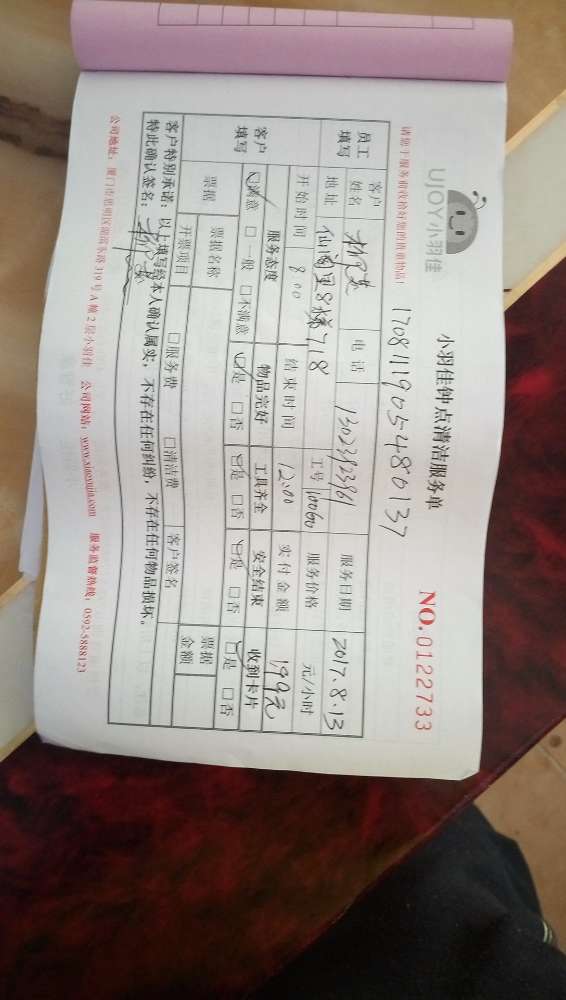 UJOY小羽佳
小羽佳钟点清洁服务单
NO.0122733
请您于服务前收拾好您的贵重物品!
170811905480137
员工填写 客户姓名 电话 服务日期 2017.8.13
地址 仙阁里8梯718 工号 10060 服务价格 元/小时
开始时间 8:00 结束时间 12:00 实付金额 199元
客户填写 服务态度 物品完好 工具齐全 安全结束 收到卡片
☑满意 □一般 □不满意 ☑是 □否 ☑是 □否 ☑是 □否 ☑是 □否
票据 票据名称 票据金额
开票项目 □服务费 □清洁费 客户签名
客户特别承诺:以上填写经本人确认属实,不存在任何纠纷,不存在任何物品损坏。
特此确认签名:
公司地址:厦门市思明区湖滨东路319号A幢2层小羽佳 公司网站:www.xiaoyujia.com 服务监督热线:0592-5888123